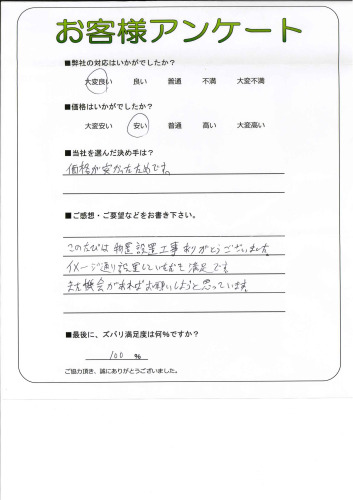 お客様アンケート
■弊社の対応はいかがでしたか？
大変良い 良い 普通 不満 大変不満
■価格はいかがでしたか？
大変安い 安い 普通 高い 大変高い
■当社を選んだ決め手は？
価格が安かったためです。
■ご感想・ご要望などをお書き下さい。
このたびは物置設置工事ありがとうございました。
イメージ通り設置していただき満足です。
また機会があればお願いしようと思っています。
■最後に、ズバリ満足度は何%ですか？
100 %
ご協力頂き、誠にありがとうございました。